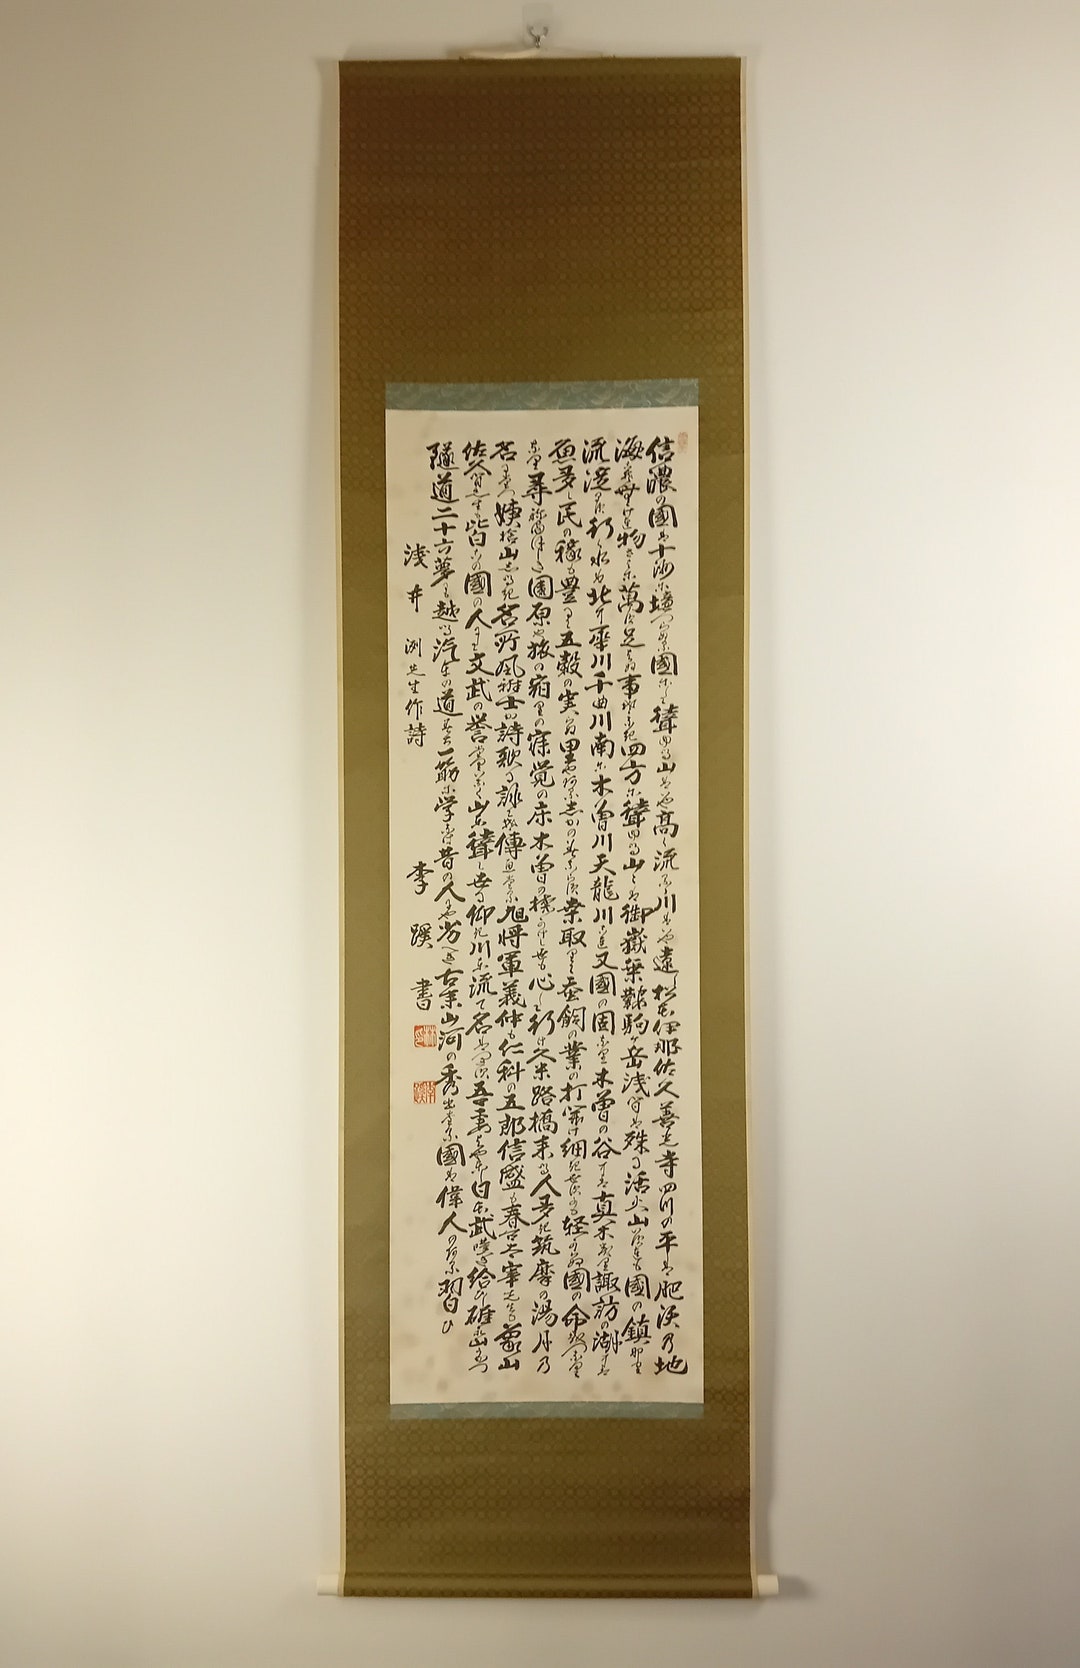 信濃の國は十州に境つらなる國にして聳ゆる山はいや高く流るゝ川はいや遠し松本伊那佐久善光寺四つの平は肥沃の地
海こそなけれ物さわに萬足らはぬ事ぞなき四方に聳ゆる山々は御嶽乗鞍駒ヶ岳浅間は殊に活火山いづれも國の鎮なり
流れ淀まず行く水は北に犀川千曲川南に木曽川天龍川これ又國の固なり木曽の谷には真木茂り諏訪の湖には
魚多し民の稼も豊にて五穀の実らぬ里やあるしかのみならず桑取りて蚕飼の業の打開け細きよすがも軽からぬ國の命を
尋ねまほしき園原や旅の宿りの寝覚の床木曽の桟かけし世も心して行け久米路橋来る人多き筑摩の湯月の
名に立つ姨捨山しるき名所と風雅士が詩歌に詠てぞ傳へたる旭将軍義仲も仁科の五郎信盛も春台太宰先生も象山
佐久間先生も皆此の國の人にして文武の誉たぐいなく山と聳えて世に仰ぎ川と流れて名は尽ず吾妻はやとし日本武嘆き給ひし碓氷山穿つ
隧道二十六夢にも越ゆる汽車の道みち一筋に学びなば昔の人にや劣るべき古来山河の秀でたる國は偉人のある習ひ
浅井洌先生作詩
李蹊書